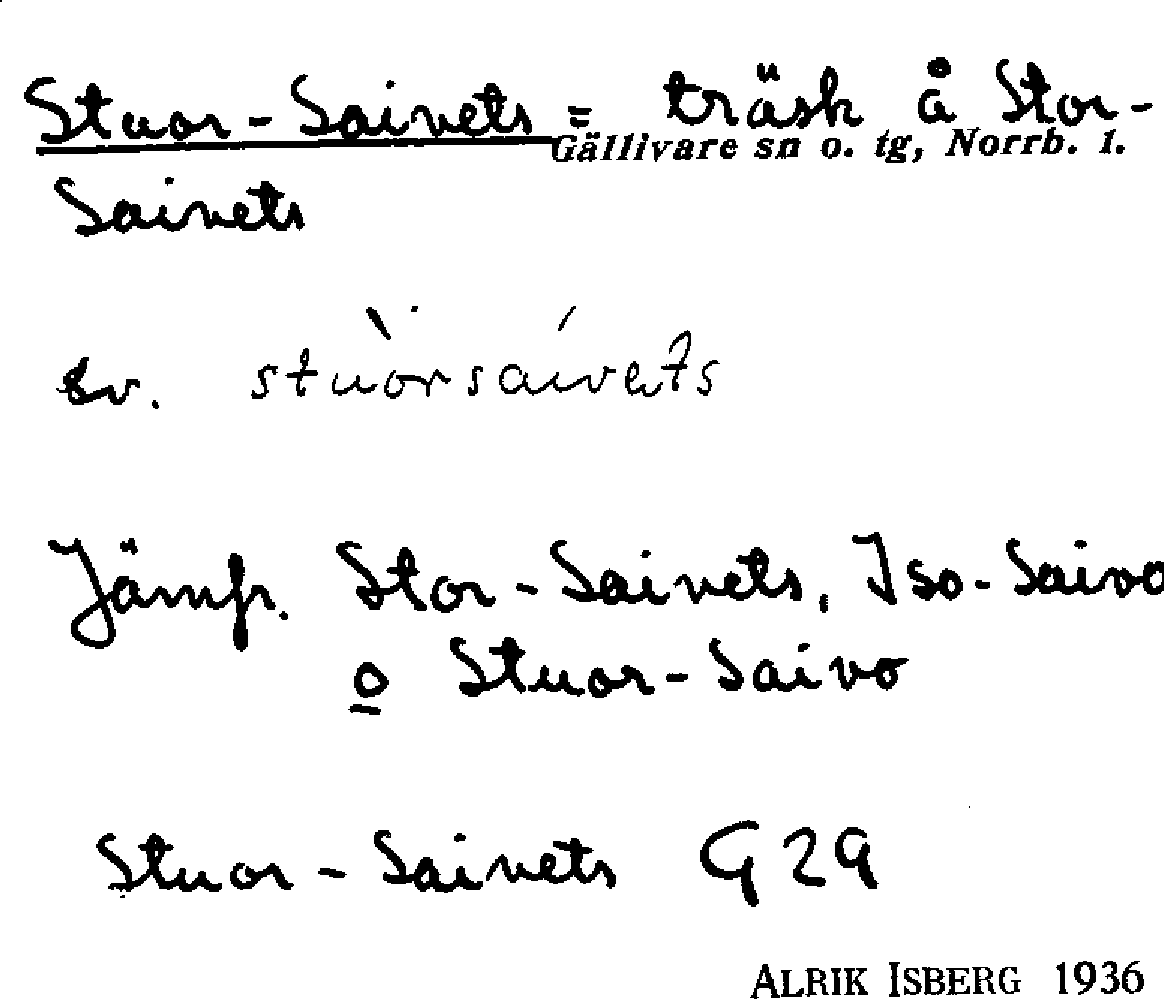 Stuor-Saivets = träsk å Stor-
Gällivare sn o. tg, Norrb. l.
Saivets
sv. stuòrsaívets
Jämfr. Stor-Saivets, Iso-Saivo
o Stuor-Saivo
Stuor-Saivets G29
ALRIK ISBERG 1936